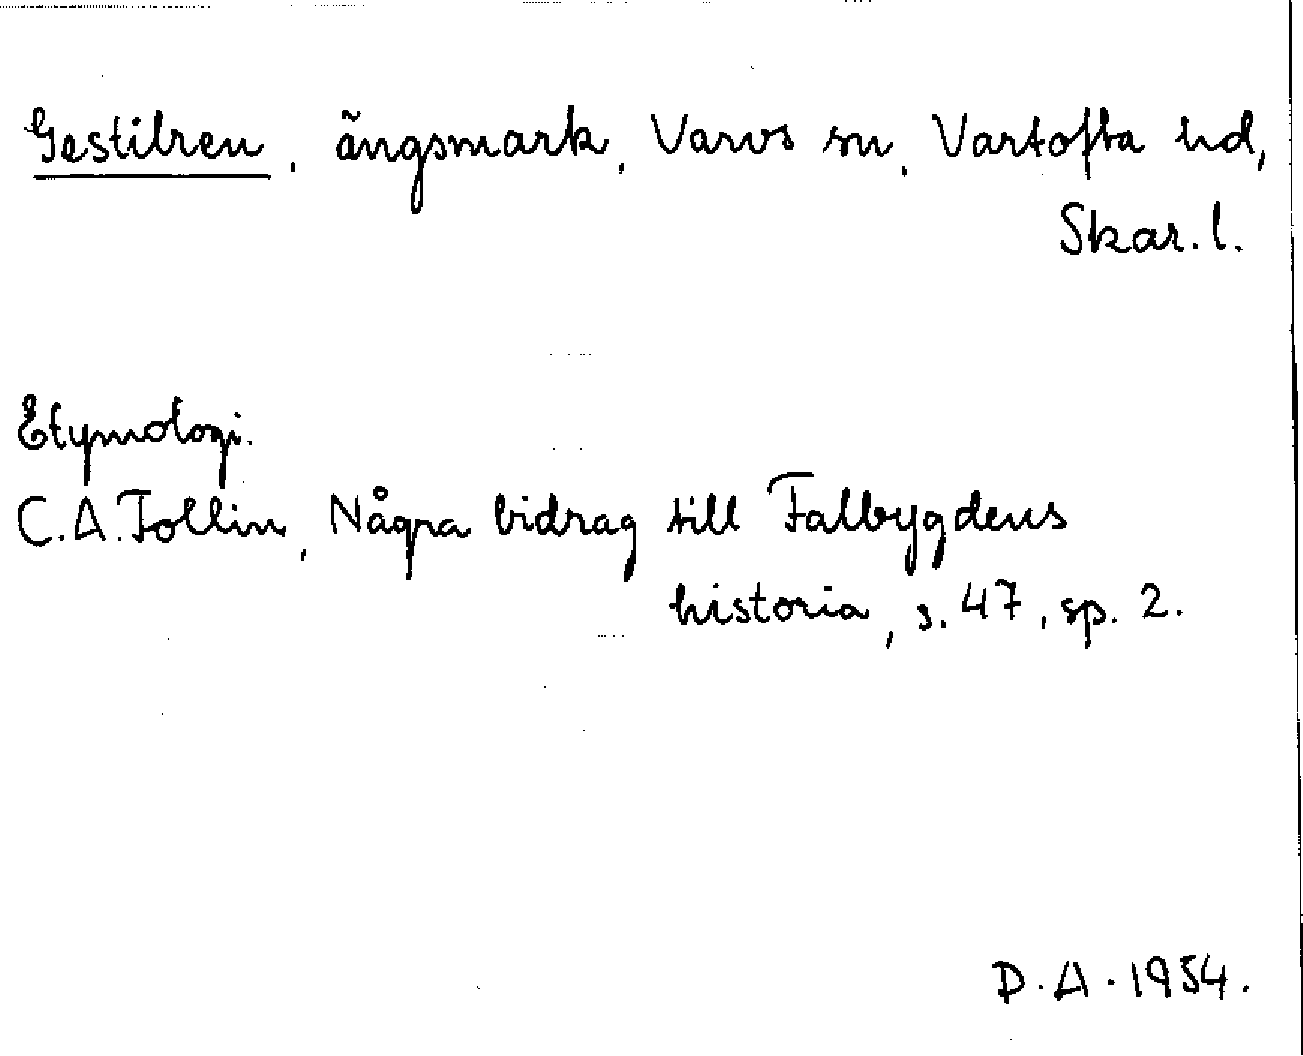 Gestilren, ängsmark, Varvs sn, Vartofta hd,
Skar. l.
Etymologi.
C.A. Tollin, Några bidrag till Falbygdens
historia, s. 47, sp. 2.
D.A. 1954.